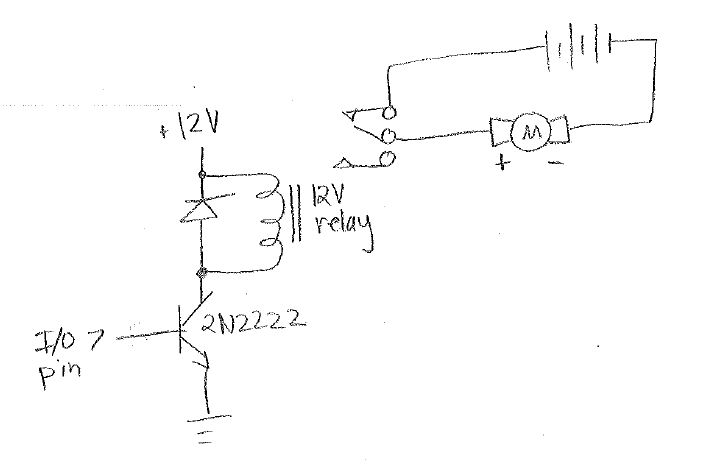 +12V
12V
relay
M
+ -
2N2222
I/O 7
pin